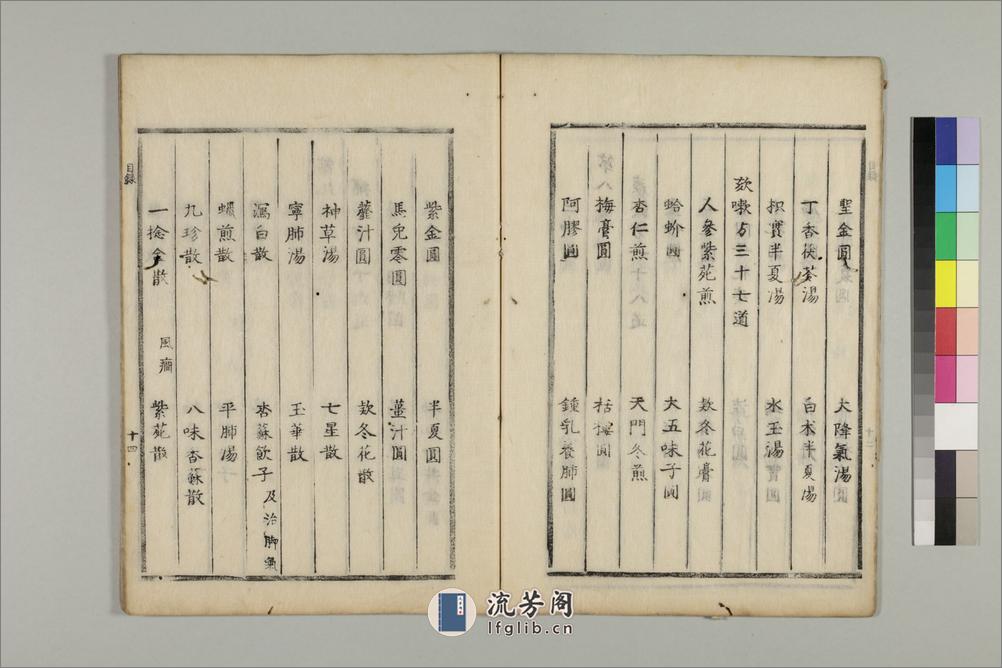 聖金圓
大降氣湯
丁香茯苓湯
白朮半夏湯
枳實半夏湯
水玉湯
欬嗽方三十七道
人參紫菀煎
欵冬花膏
蛤蚧圓
大五味子圓
杏仁煎
天門冬煎
梅膏圓
栝樓圓
阿膠圓
鍾乳養肺圓
紫金圓
半夏圓
馬兜零圓
薑汁圓
虀汁圓
欵冬花散
神草湯
七星散
寧肺湯
玉華散
瀉白散
杏蘇飲子 及治脚氣
蠟煎散
平肺湯
九珍散
八味香蘇散
一捻金散 風癎
紫菀散
目録
十四
流芳阁
lfglib.cn